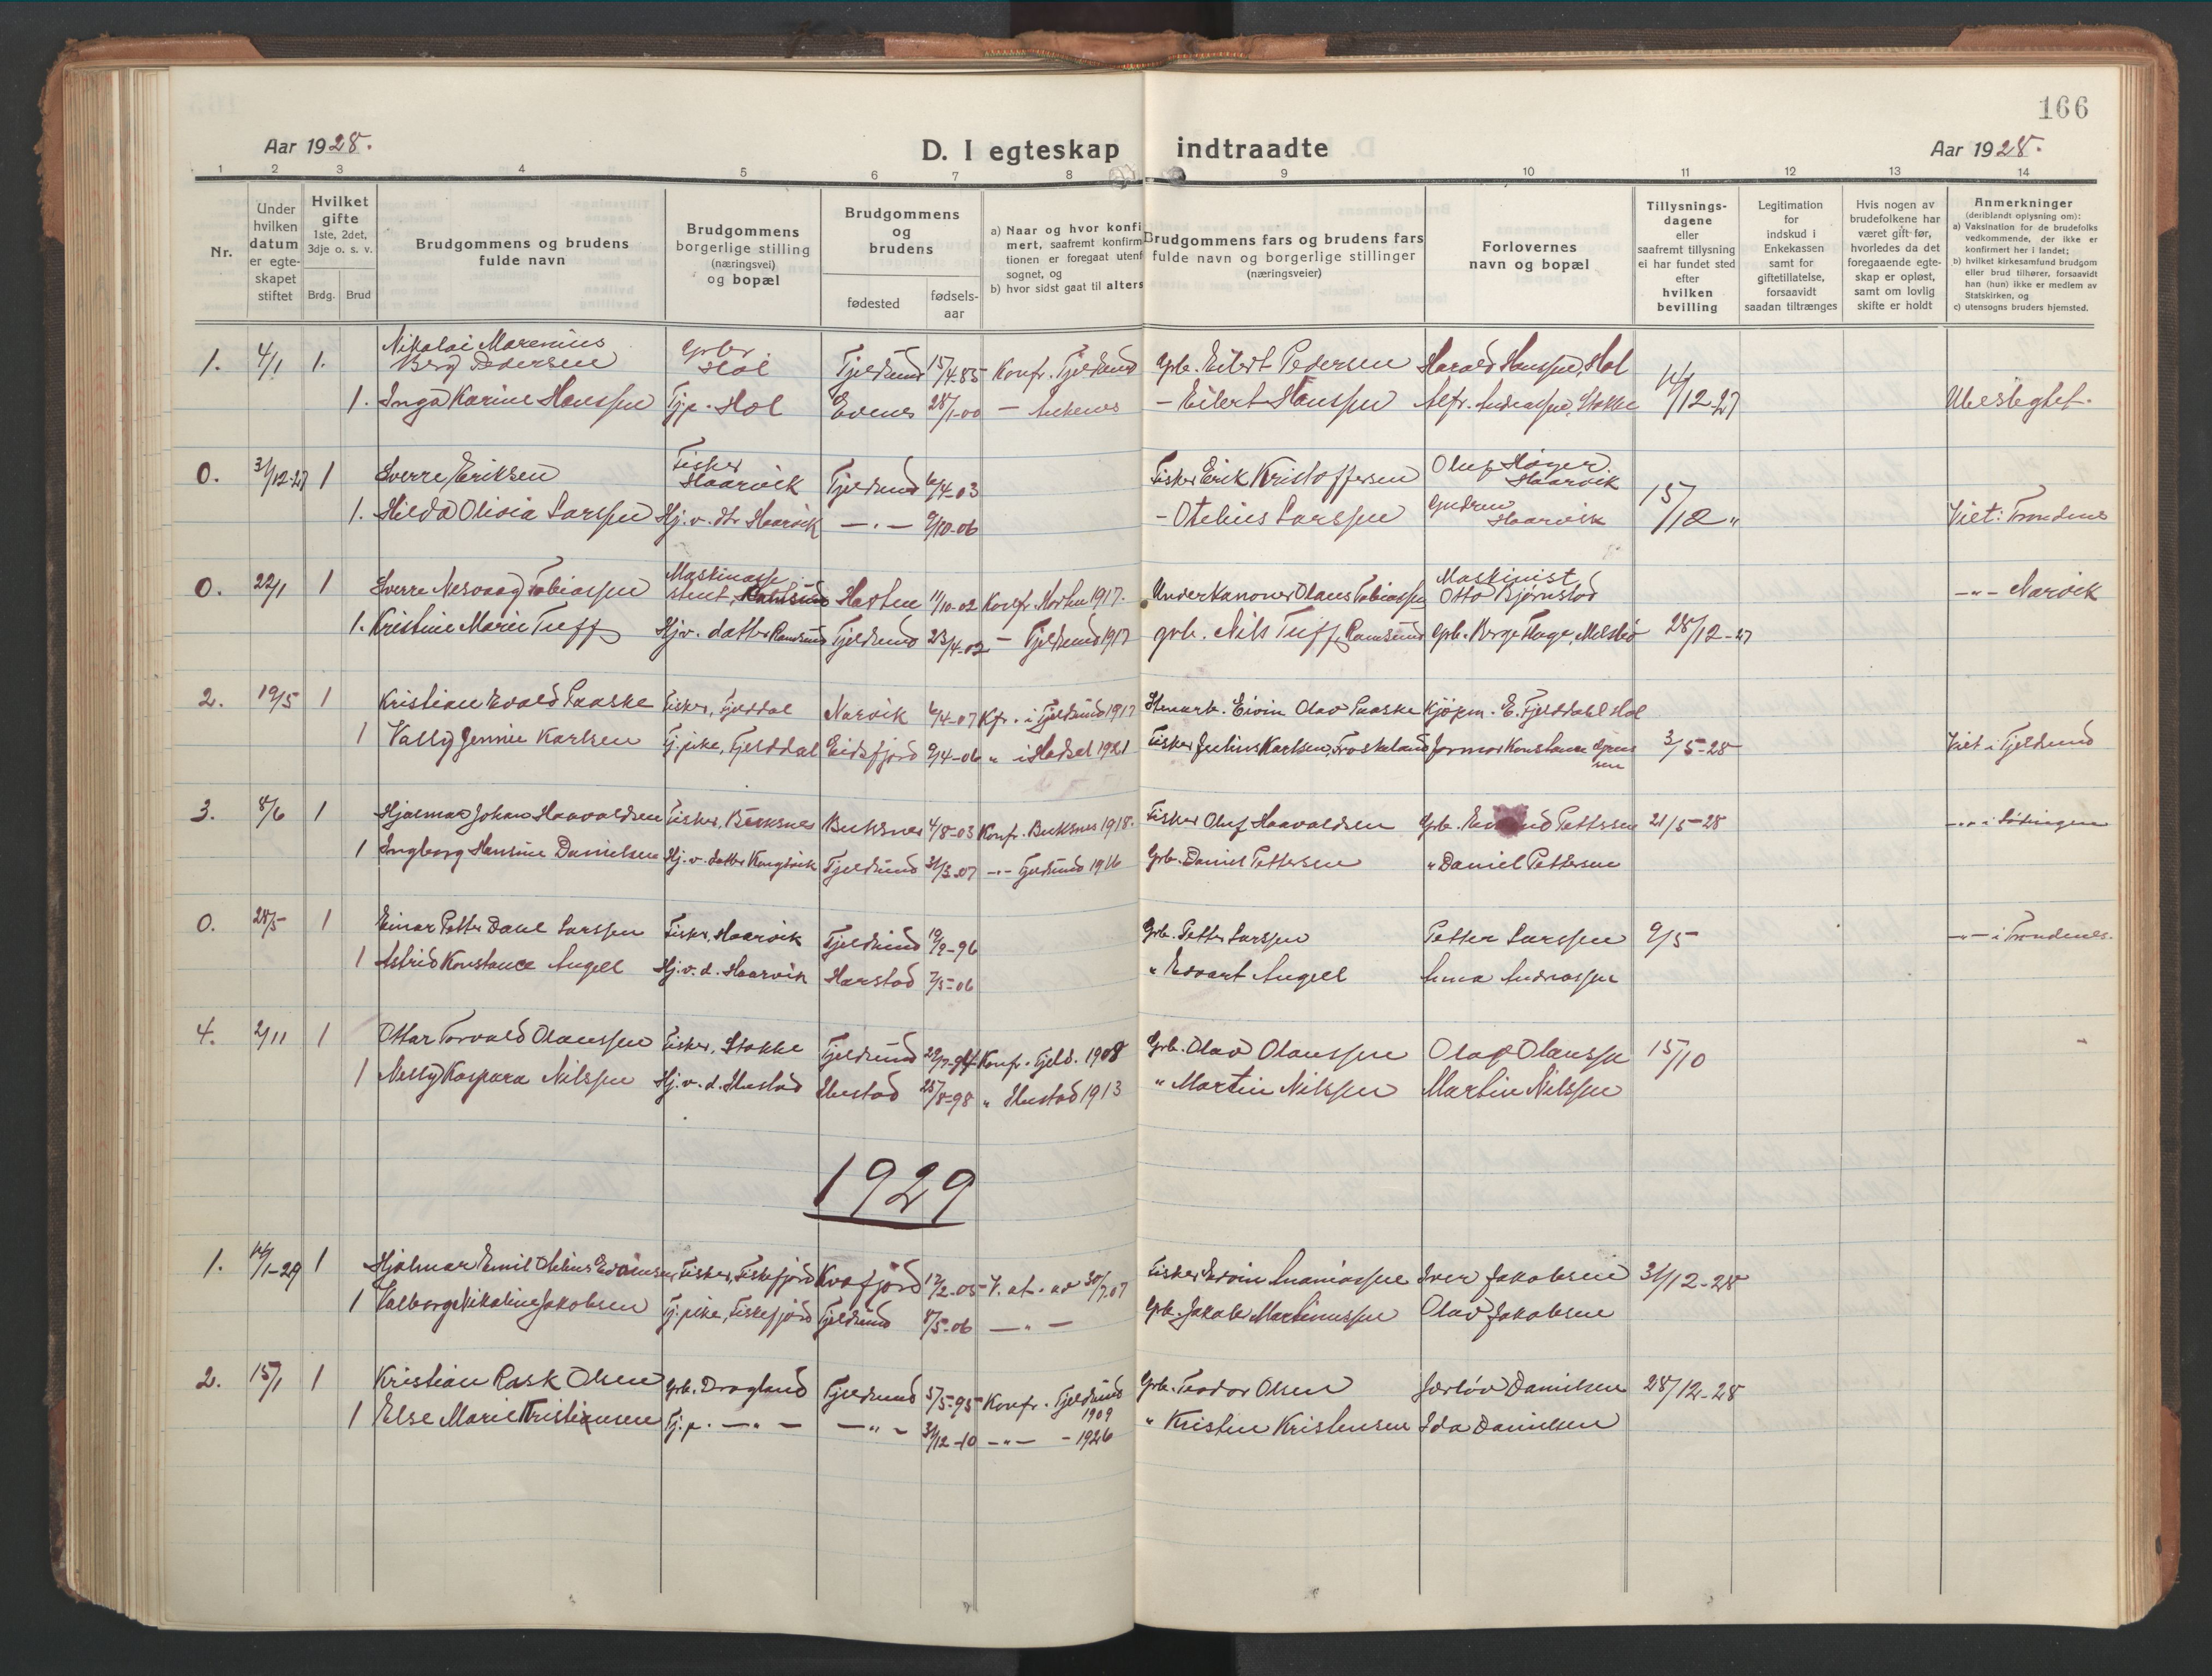 166
Aar 1928.
D. I egteskap indtraadte
Aar 1928.
1 2 3 4 5 6 7 8 9 10 11 12 13 14
Nr.
Under hvilken datum er egteskapet stiftet
Hvilket gifte 1ste, 2det, 3dje o. s. v.
Brdg. Brud
Brudgommens og brudens fulde navn
Brudgommens borgerlige stilling (næringsvei) og bopæl
Brudgommens og brudens
fødested
fødsels-aar
a) Naar og hvor konfi
mert, saafremt konfirm
tionen er foregaat utenf
sognet, og
b) hvor sidst gaat til alters
Brudgommens fars og brudens fars
fulde navn og borgerlige stillinger
(næringsveier)
Forlovernes
navn og bopæl
Tillysnings-
dagene
eller
saafremt tillysning
ei har fundet sted
efter
hvilken
bevilling
Legitimation
for
indskud i
Enkekassen
samt for
giftetillatelse,
forsaavidt
saadan tiltrænges
Hvis nogen av
brudefolkene har
været gift før,
hvorledes da det
foregaaende egte-
skap er opløst,
samt om lovlig
skifte er holdt
Anmerkninger
(deriblandt oplysning om):
a) Vaksination for de brudefolks
vedkommende, der ikke er
konfirmert her i landet;
b) hvilket kirkesamfund brudgom
eller brud tilhører, forsaavidt
han (hun) ikke er medlem av
Statskirken, og
c) utensogns bruders hjemsted.
1. 4/1 1. Nikolai Marenius Berg Pedersen Grbr Hol Tjeldsund 15/4-85 Konfr. Tjeldsund Grb. Eilert Pedersen Harald Hanssen, Hol 14/12-27
1. Inga Karine Hanssen Tj.p. Hol Evenes 28/1-00 — Ankenes - Eilert Hanssen Alfr. Andreassen, Stokke Ubeslegtet.
0. 31/12-27 1 Sverre Eriksen Fisker Haarvik Tjeldsund 6/4-03 Fisker Erik Kristoffersen Oluf Høger Haarvik 15/12 "
1. Hilda Olivia Larssen Hj.v. dtr Haarvik —"— 9/10-06 - Otelius Larssen Gudrun Haarvik Viet: Trondenes
0. 22/1 1 Sverre Nesvaag Tobiassen Maskinassistent, Ramsund Horten 11/10-02 Konfr. Horten 1917. Underkanoner Olaus Tobiassen Maskinist Otto Bjørnstad —"— Narvik
1. Kristine Marie Tuff Hj.v. datter Ramsund Tjeldsund 23/4-02 — Tjeldsund 1917 grb. Nils Tuff, Ramsund Grb. Berge Hage, 28/12-27
2. 19/5 1 Kristian Evald Paaske Fisker, Fjelddal Narvik 6/4-07 Kfr. i Tjeldsund 1917 Stenarb. Eivin Olav Paaske Kjøpm. E. Fjelddahl Hol
1 Vally Jennie Karlsen Tj.pike, Fjelddal Eidsfjord 9/4-06 " i Hadsel 1921 Fisker Julius Karlsen, Froskeland 3/5-28 Viet i Tjeldsund
3. 8/6 1 Hjalmar Johan Haavaldsen Fisker, Buksnes 4/8-03 Konf. Buksnes 1918. Fisker Oluf Haavaldsen Grb. Pettersen 21/5-28 —"— i Lødingen
1 Ingborg Hansine Danielsen Hj.v. datter Kongsvik Tjeldsund 31/3-07 —"— Tjeldsund 1916 Grb. Daniel Pettersen " Daniel Pettersen
0. 28/5 1 Einar Petter Dahl Larssen Fisker, Haarvik Tjeldsund 19/9-96 Grb. Petter Larssen Petter Larssen 9/5 —"— i Trondenes.
1 Astrid Konstance Angell Hj.v.d. Haarvik Harstad 7/5-06 " Edvart Angell Anna Andreassen
4. 2/11 1 Ottar Torvald Olaussen Fisker, Stokke Tjeldsund 29/7-94 Konf. Tjelds. 1908 Grb. Olav Olaussen Olaf Olaussen 15/10
1 Nelly Kaspara Nilssen Hj.v.d. Hustad Hustad 25/8-98 " Hustad 1913 " Martin Nilssen Martin Nilssen
1929
1. 14/1-29 1 Hjalmar Emil Edvinsen Fisker, Fiskefjord Kvæfjord 12/2-05 V. at. av 30/7.07 Fisker Edvin Ananiassen Iver Jakobsen 31/12-28
1 Valborg Nikoline Jakobsen Tj.pike, Fiskefjord Tjeldsund 8/5-06 —"— Grb. Jakob Martinussen Olav Jakobsen
2. 15/1 1 Kristian Rask Olsen Grb. Dragland Tjeldsund 5/5-95 Konfr. Tjeldsund 1909 Grb. Teodor Olsen Danielsen 28/12-28
1 Else Marie Kristiansen Tj.p. —"— —"— 31/12-10 —"— - 1926 " Kristen Kristensen Ida Danielsen